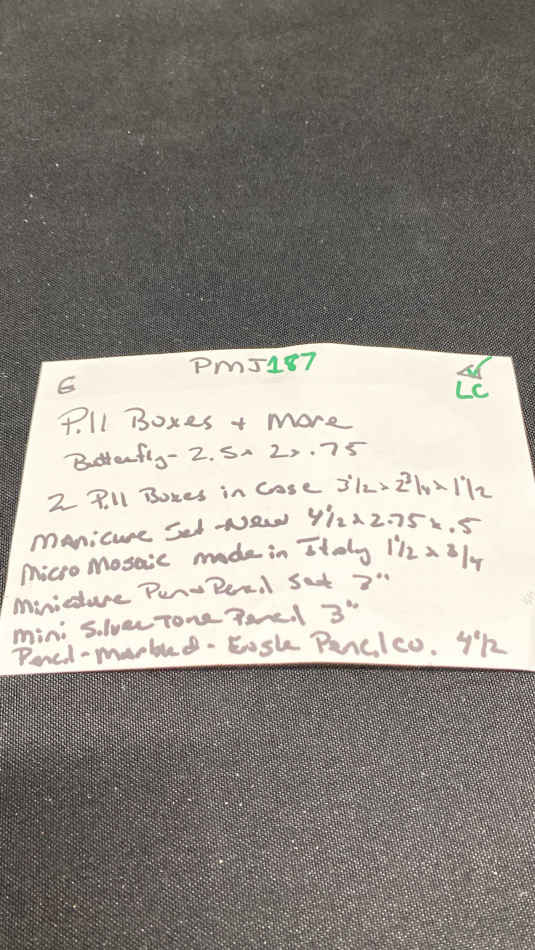 PMJ187
G
LC
Pill Boxes + More
Butterfly - 2.5 x 2 x .75
2 Pill Boxes in Case 3 1/2 x 2 3/4 x 1 1/2
Manicure Set - New 4 1/2 x 2.75 x .5
Micro Mosaic made in Italy 1 1/2 x 3/4
Miniature Pen + Pencil Set 3"
Mini Silver Tone Pencil 3"
Pencil - Marbled - Eagle Pencil Co. 4 1/2